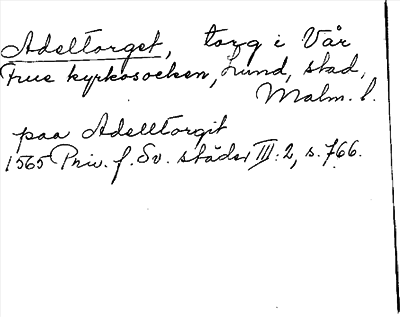 Adeltorget, torg i Vår
Frue kyrkosocken, Lund, stad,
Malm. l.
paa Adelltorgit
1565 Priv. f. Sv. städer III:2, s. 766.